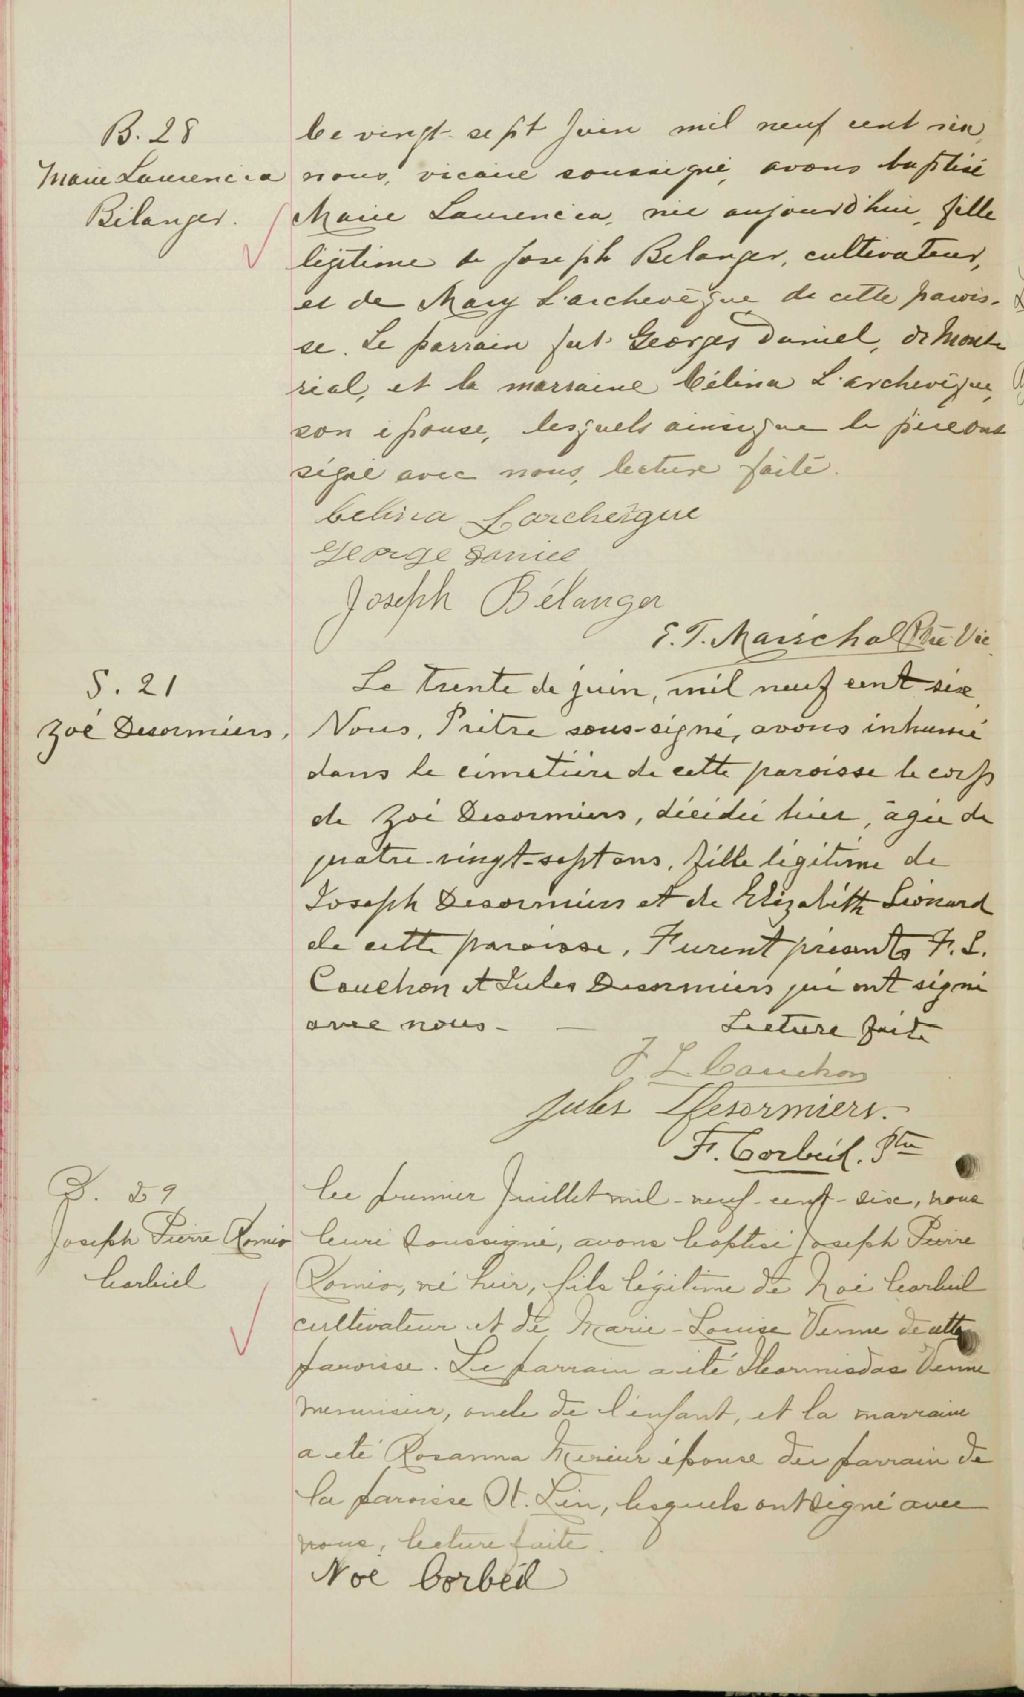 B. 28
Marie Laurencia
Bélanger.
Le vingt-sept Juin mil neuf cent six,
nous, vicaire soussigné, avons baptisé
Marie Laurencia, née aujourd'hui, fille
légitime de Joseph Belanger, cultivateur,
et de Mary Larchevêque de cette parois-
se. Le parrain fut Georges Daniel, de Mont-
réal, et la marraine Célina Larchevêque,
son épouse, lesquels ainsi que le père ont
signé avec nous, lecture faite.
Celina Larchevêque
George Daniel
Joseph Bélanger
E. T. Maréchal Ptre Vic.
S. 21
Zoé Desormiers.
Le trente de juin, mil neuf cent six,
Nous, Prêtre sous-signé, avons inhumé
dans le cimetière de cette paroisse le corps
de Zoé Desormiers, décédée hier, âgée de
quatre-vingt-sept ans, fille légitime de
Joseph Desormiers et de Elizabéth Léonard
de cette paroisse. Furent présents F. L.
Cauchon et Jules Desormiers qui ont signé
avec nous - — Lecture faite
F. L. Cauchon
Jules Desormiers.
F. Corbeil. Ptre
B. 29
Joseph Pierre Roméo
Corbeil
Le premier Juillet mil-neuf-cent-six, nous
Curé Soussigné, avons baptisé Joseph Pierre
Roméo, né hier, fils légitime de Noé Corbeil
cultivateur et de Marie-Louise Venne de cette
paroisse. Le parrain a été Hormisdas Venne
menuisier, oncle de l'enfant, et la marraine
a été Rosanna Mercier épouse du parrain de
la paroisse St. Lin, lesquels ont signé avec
nous, lecture faite.
Noé Corbeil